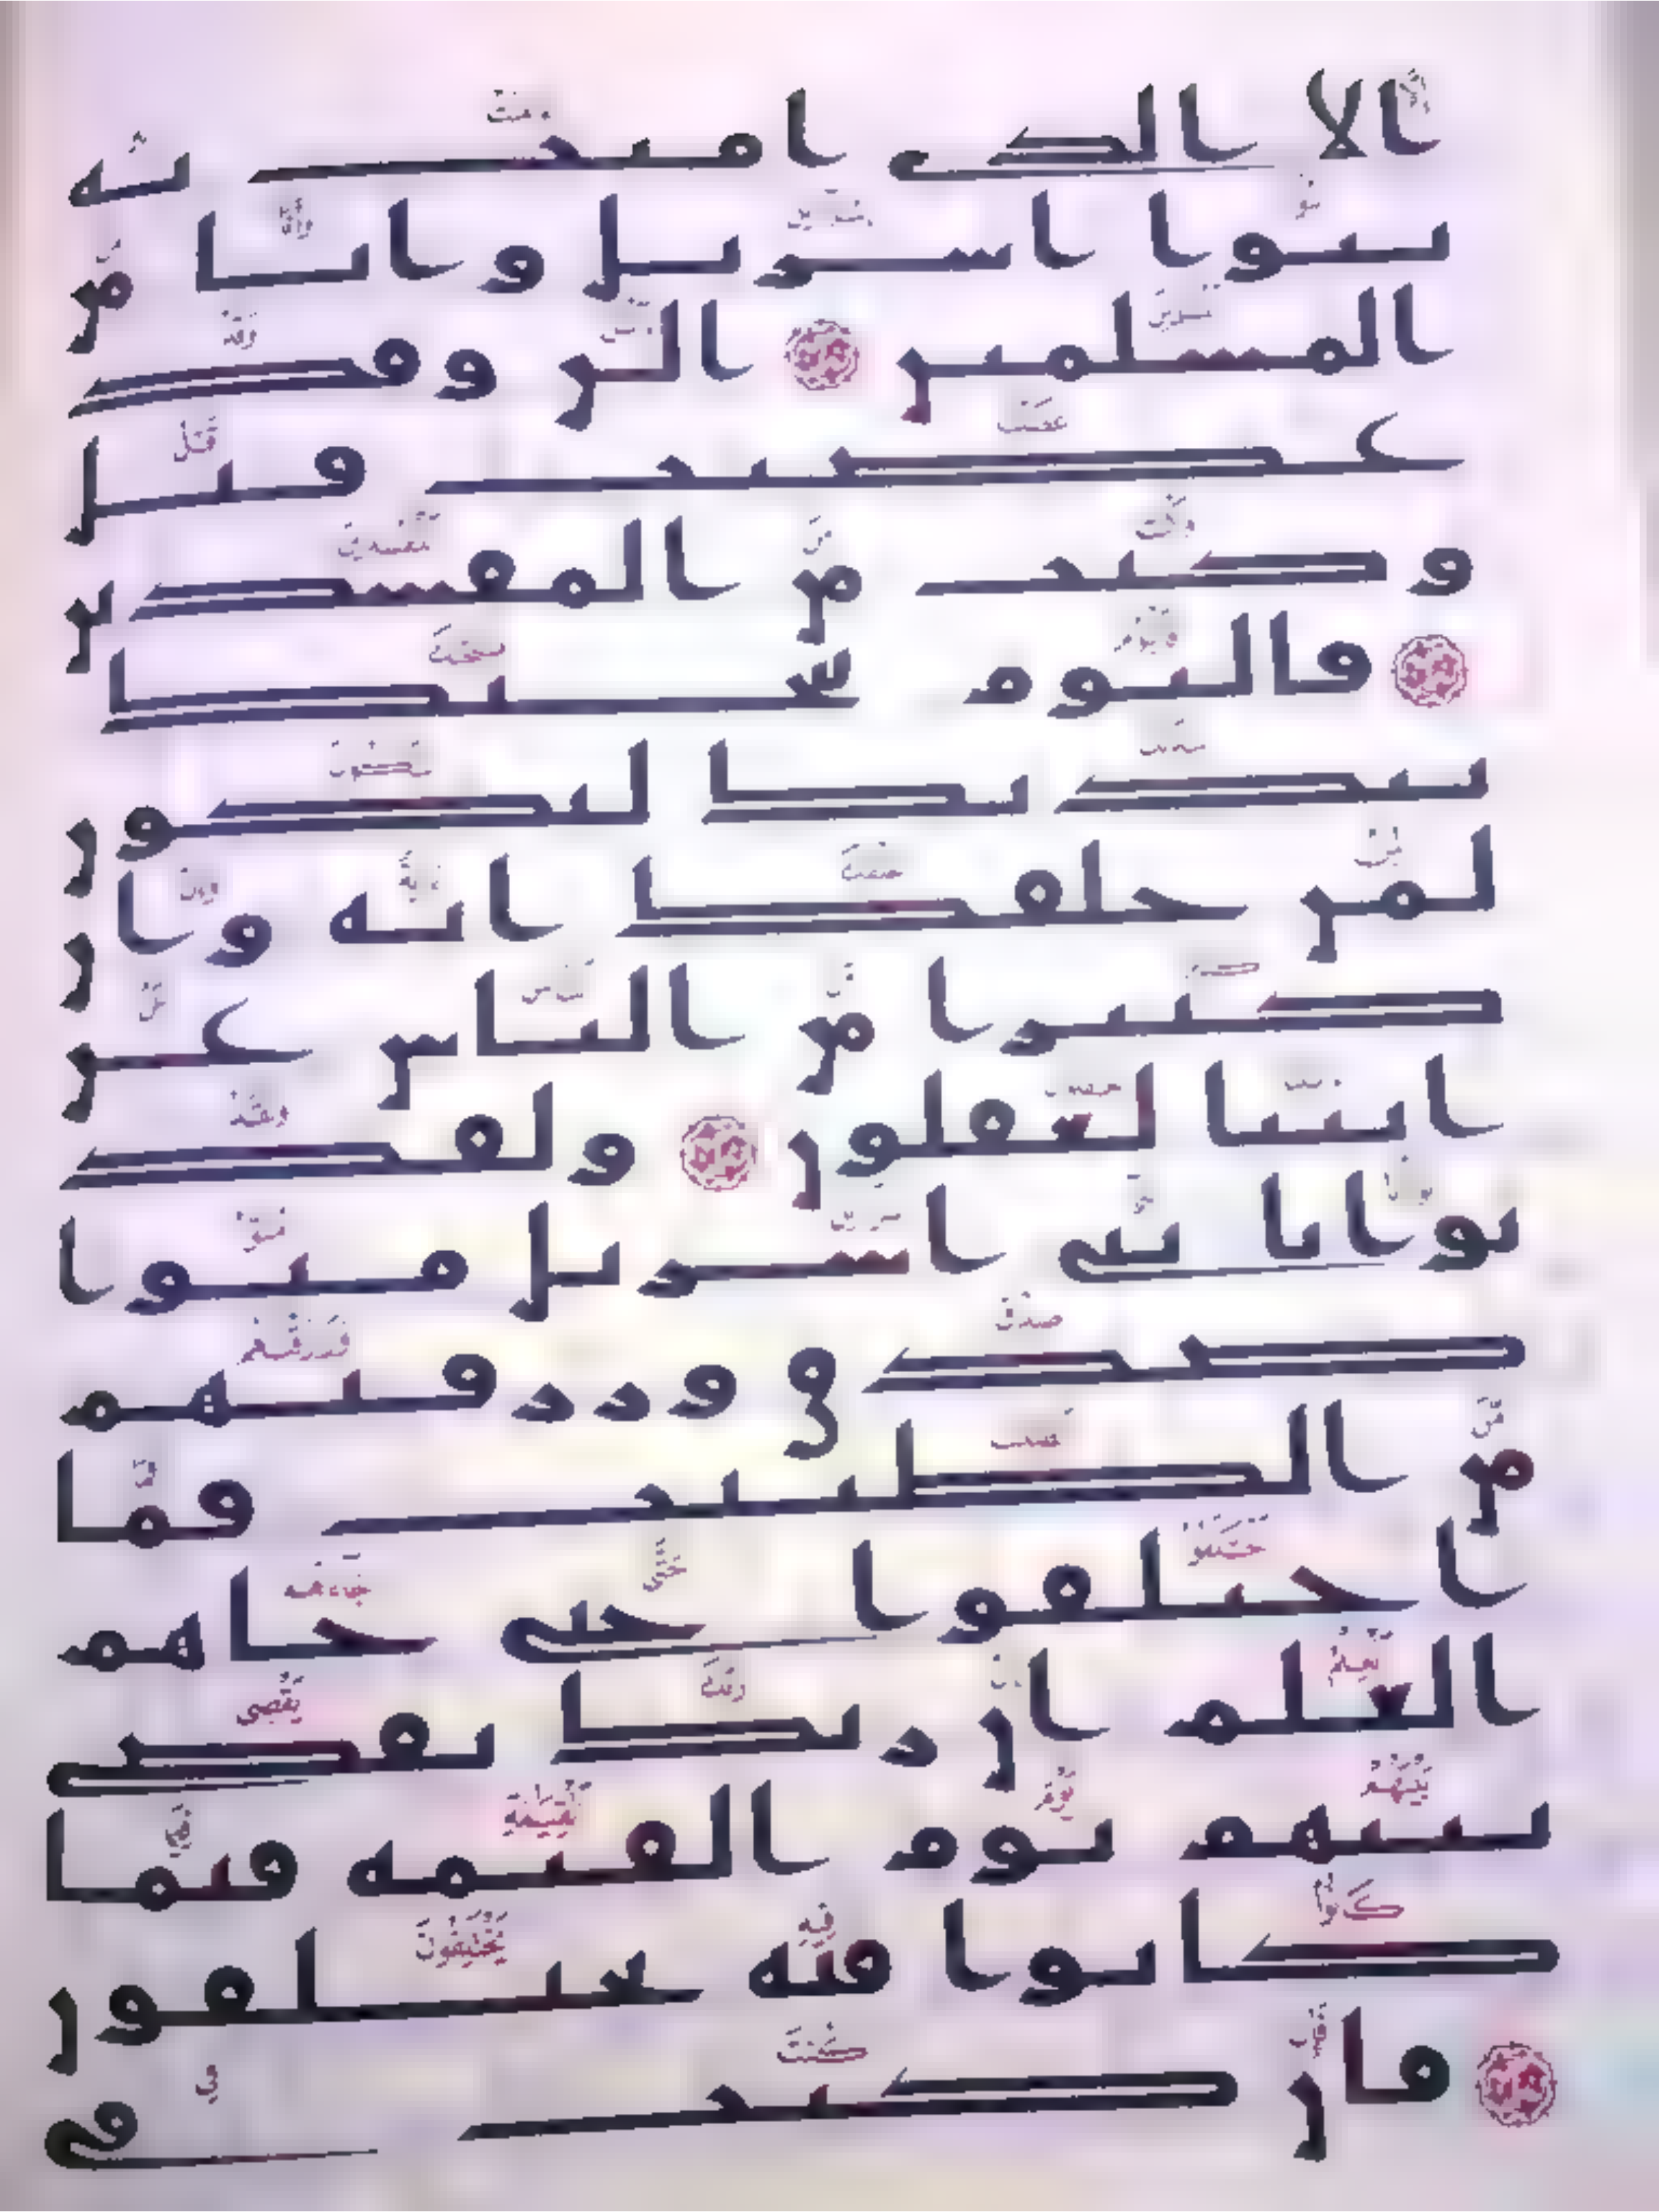 الا الذي امنت به
بنوا اسريل وانا من
المسلمين ۝ الن وقد
عصيت قبل
وكنت من المفسدين
۝ فاليوم ننجيك
ببدنك لتكون
لمن خلفك اية وان
كثيرا من الناس عن
ايتنا لغفلون ۝ ولقد
بوانا بني اسريل مبوا
صدق ورزقنهم
من الطيبت فما
اختلفوا حتى جاهم
العلم ان ربك يقضي
بينهم يوم القيمة فيما
كانوا فيه يختلفون
۝ فان كنت في